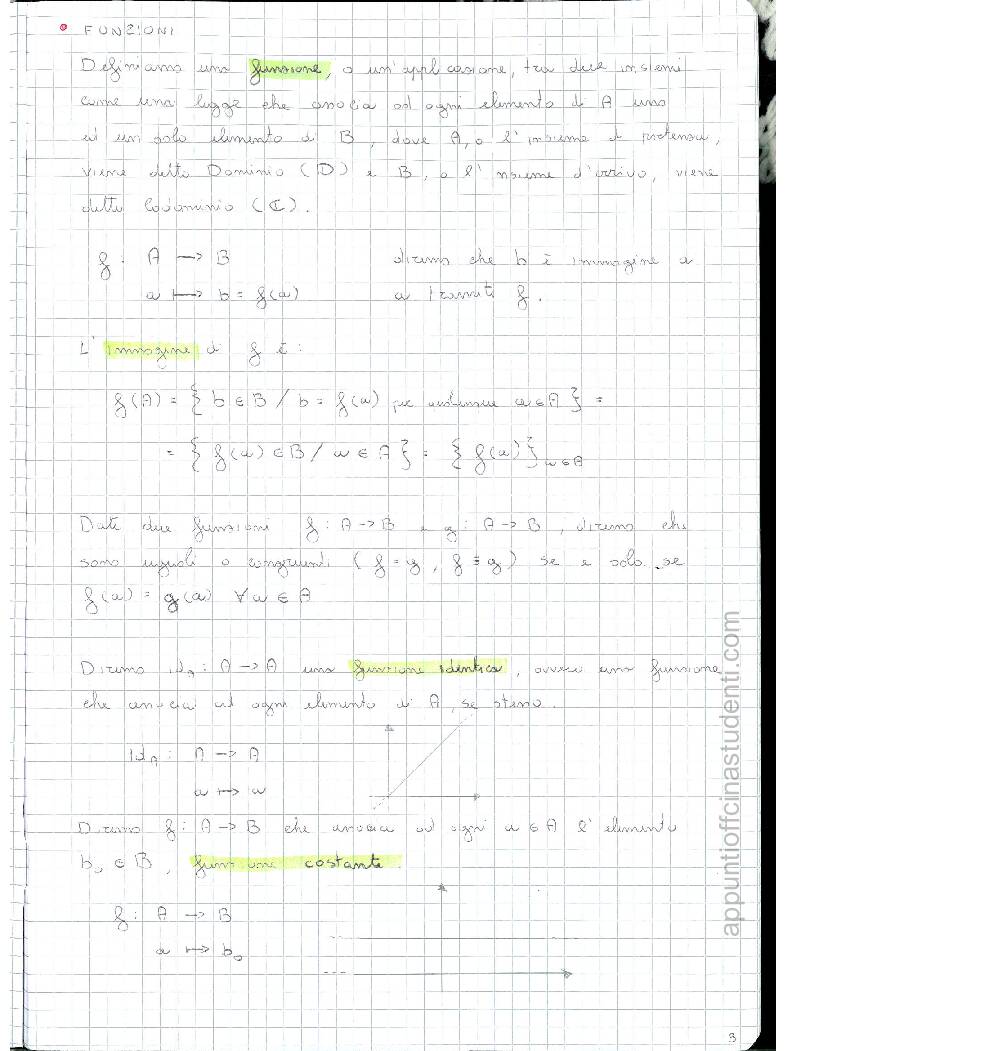 • FUNZIONI
Definiamo una funzione, o un'applicazione, tra due insiemi
come una legge che associa ad ogni elemento di A uno
ed un solo elemento di B, dove A, o l'insieme di partenza,
viene detto Dominio (D) e B, o l'insieme d'arrivo, viene
detto Codominio (C).
f: A → B diremo che b è immagine di
a ↦ b = f(a) a tramite f.
L'immagine di f è:
f(A) = { b ∈ B / b = f(a) per a ∈ A } =
= { f(a) ∈ B / a ∈ A } = { f(a) }a∈A
Date due funzioni f: A → B e g: A → B, diremo che
sono uguali o congruenti ( f = g, f ≡ g ) se e solo se
f(a) = g(a) ∀a ∈ A
Diremo idA: A → A una funzione identica, ovvero una funzione
che associa ad ogni elemento di A, se stesso.
IdA: A → A
a ↦ a
Diremo f: A → B che associa ad ogni a ∈ A l'elemento
b0 ∈ B, funzione costante.
f: A → B
a ↦ b0
appuntioffcinastudenti.com
3